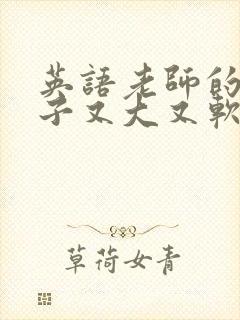 英語老師的
子又大又軟
草荷女青